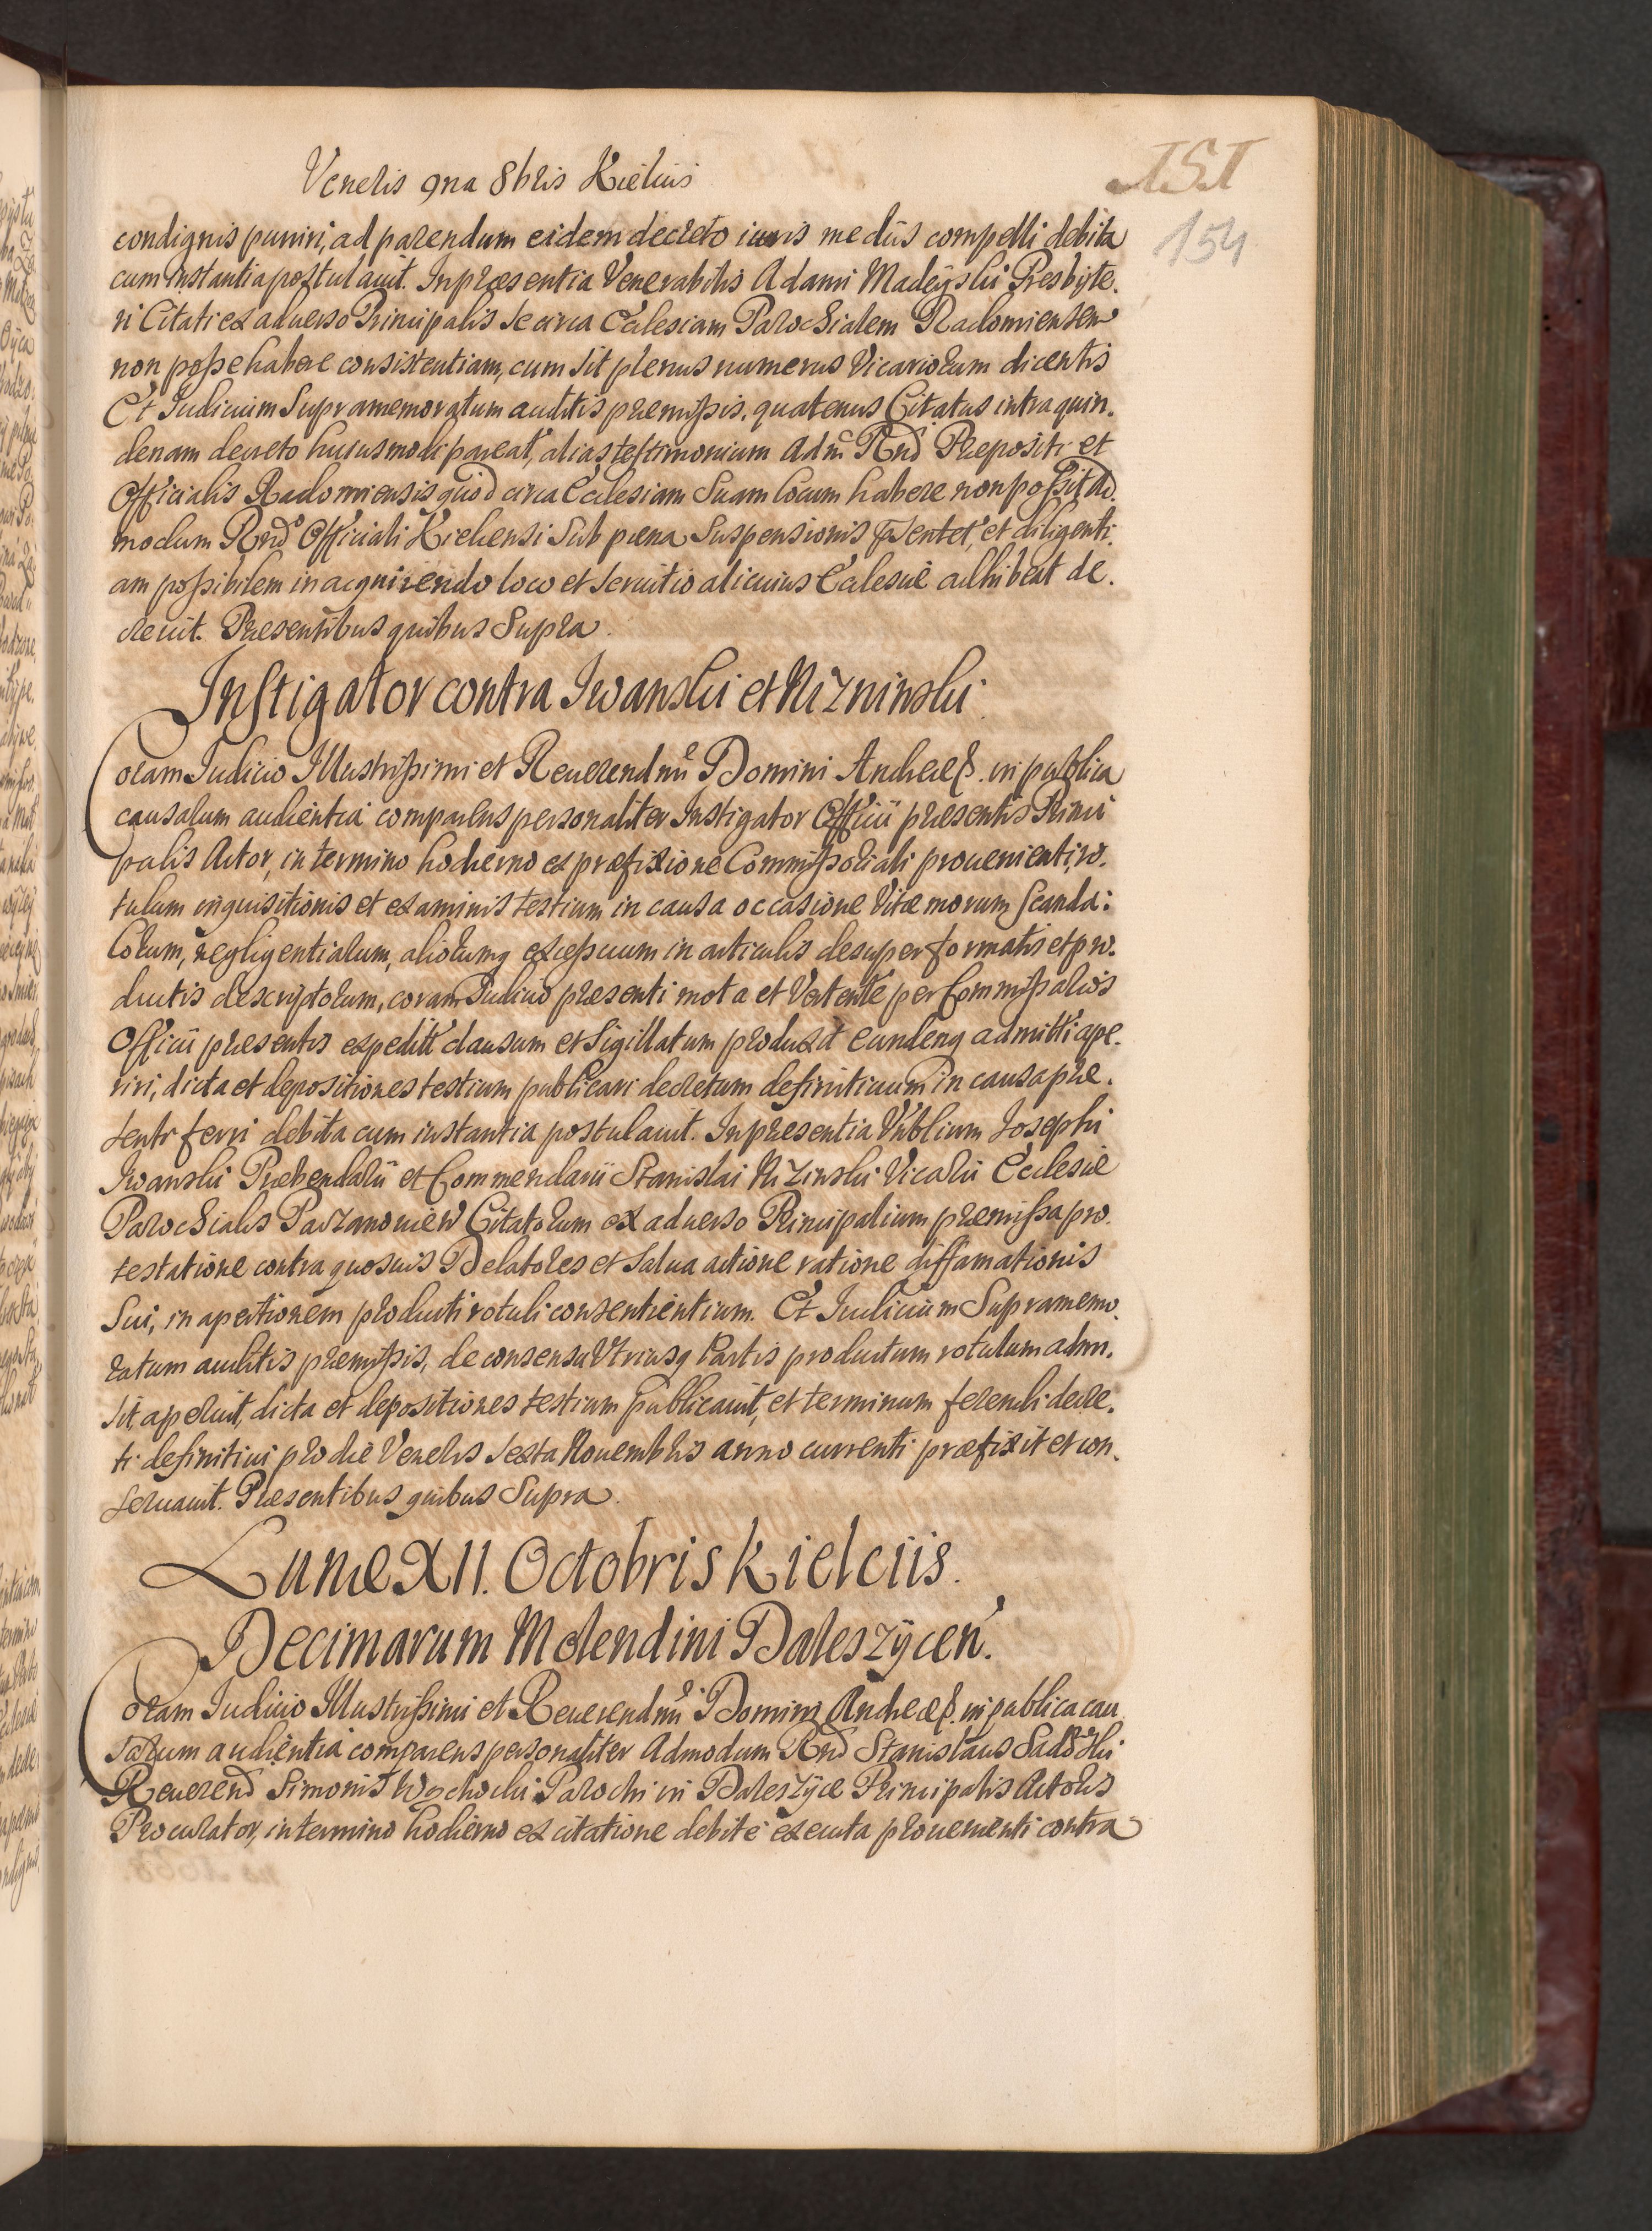 Veneris 9na 8bris Kielciis
151
154
condignis puniri, ad parendum eidem decreto iuris mediis compelli debita
cum instantia postulauit. In præsentia Venerabilis Adami Madeyski Presbyte.
ri Citati ex aduerso Principalis se circa Ecclesiam Parochialem Radomiensem
non posse habere consistentiam, cum sit plenus numerus Vicariorum dicentis
Et Iudicium Supramemoratum auditis præmissis. quatenus Citatus intra quin.
denam decreto huiusmodi pareat, alias testimonium Adm Rndi Præpositi et
Officialis Radomiensis quod circa Ecclesiam Suam locum habere non possit Ad.
modum Rndo Officiali Kielcensi Sub pœna Suspensionis præsentet, et diligenti.
am possibilem in acquirendo loco et seruitio alicuius Ecclesiæ adhibeat de.
creuit. Præsentibus quibus Supra.
Instigator contra Iwanski et Nizninski.
Coram Iudicio Illustrissimi et Reuerendmi Domini Andreæ &. in publica
causarum audientia comparens personaliter Instigator Officii præsentis Princi
palis Actor, in termino hodierno ex præfixione Commissoriali proueniente, ro.
tulum inquisitionis et examinis testium in causa occasione Vitæ morum Scanda:
lorum, negligentiarum, aliorumq excessuum in articulis desuper formatis et pro.
ductis descriptorum, coram Iudicio præsenti mota et Vertente per Commissarios
Officii præsentis expeditt clausum et Sigillatum produxit eundemq admitti ape.
riri, dicta et depositiones testium publicari decretum definitiuum in causa præ.
senti ferri debita cum instantia postulauit. In præsentia Vnblium Iosephi
Iwanski Præbendarii et Commendarii Stanislai Nizinski Vicarii Ecclesiæ
Parochialis Parzanouien Citatorum ex aduerso Principalium præmissa pro.
testatione contra quosuis Delatores et salua actione ratione diffamationis
Sui, in apertionem producti rotuli consentientium. Et Iudicium Supramemo.
ratum auditis præmissis, de consensu Vtriusq Partis productum rotulum admi.
sit, aperuit, dicta et depositiones testium publicauit, et terminum ferendi decre.
ti definitiui pro die Veneris sexta Nouembris anno currenti præfixit et con.
seruauit. Præsentibus quibus Supra.
Lunæ XII. Octobris Kielciis.
Decimarum Molendini Daleszycen.
Coram Iudicio Illustrissimi et Reuerendmi Domini Andreæ &. in publica cau
sarum audientia comparens personaliter Admodum Rnd Stanislaus
Reuerend Simonis Wychocki Parochi in Daleszyce Principalis Actoris
Procurator, in termino hodierno ex citatione debite executa prouenienti contra